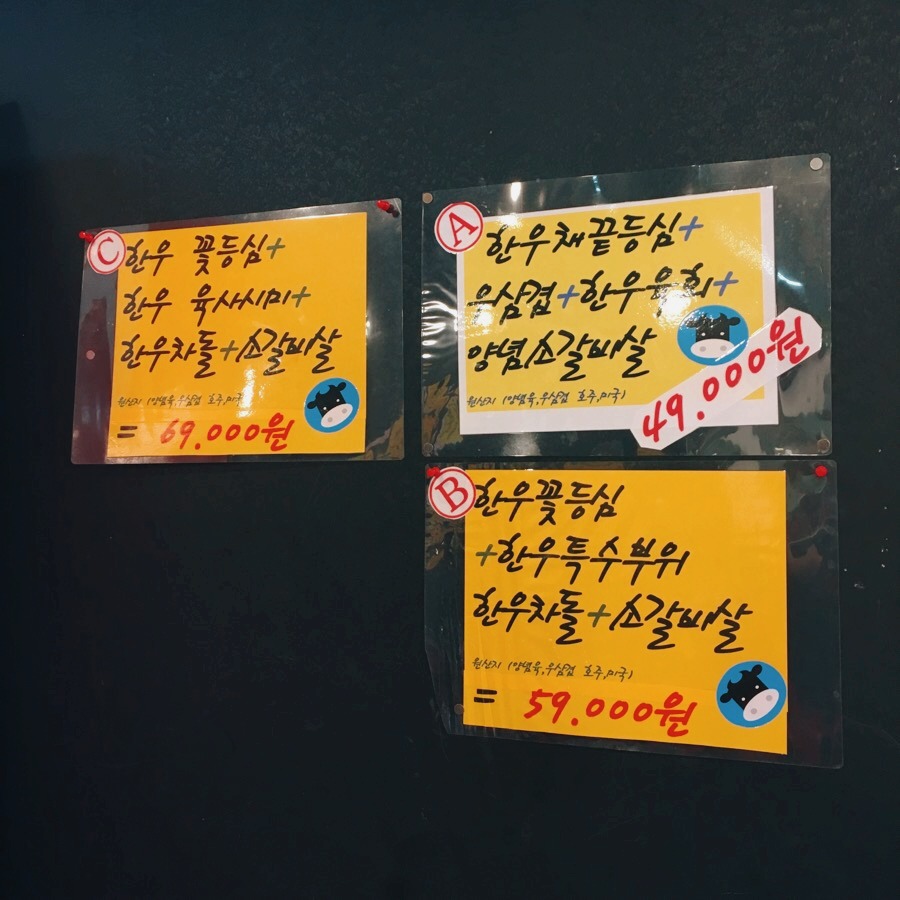 C
한우 꽃등심+
한우 육사시미+
한우차돌+소갈비살
원산지 (양념육,우삼겹 호주,미국)
= 69.000원
A
한우채끝등심+
우삼겹+한우육회+
양념소갈비살
원산지 (양념육,우삼겹 호주,미국)
49.000원
B
한우꽃등심
+한우특수부위
한우차돌+소갈비살
원산지 (양념육,우삼겹 호주,미국)
= 59.000원